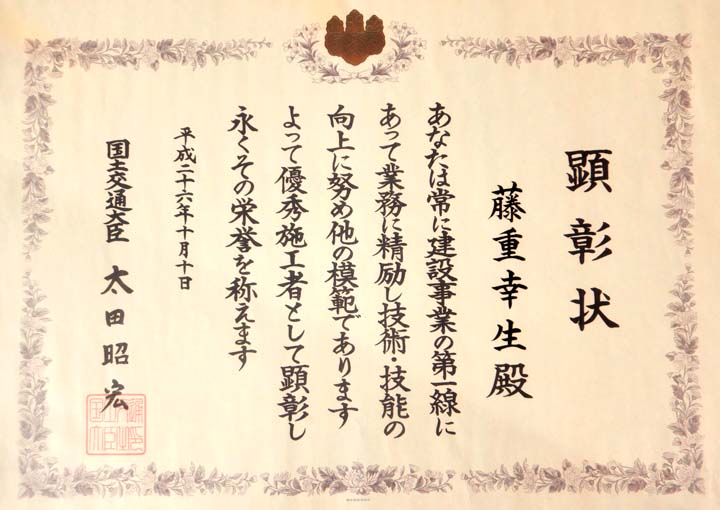 顕彰状
藤重幸生殿
あなたは常に建設事業の第一線に
あって業務に精励し技術・技能の
向上に努め他の模範であります
よって優秀施工者として顕彰し
永くその栄誉を称えます
平成二十六年十月十日
国土交通大臣 太田昭宏